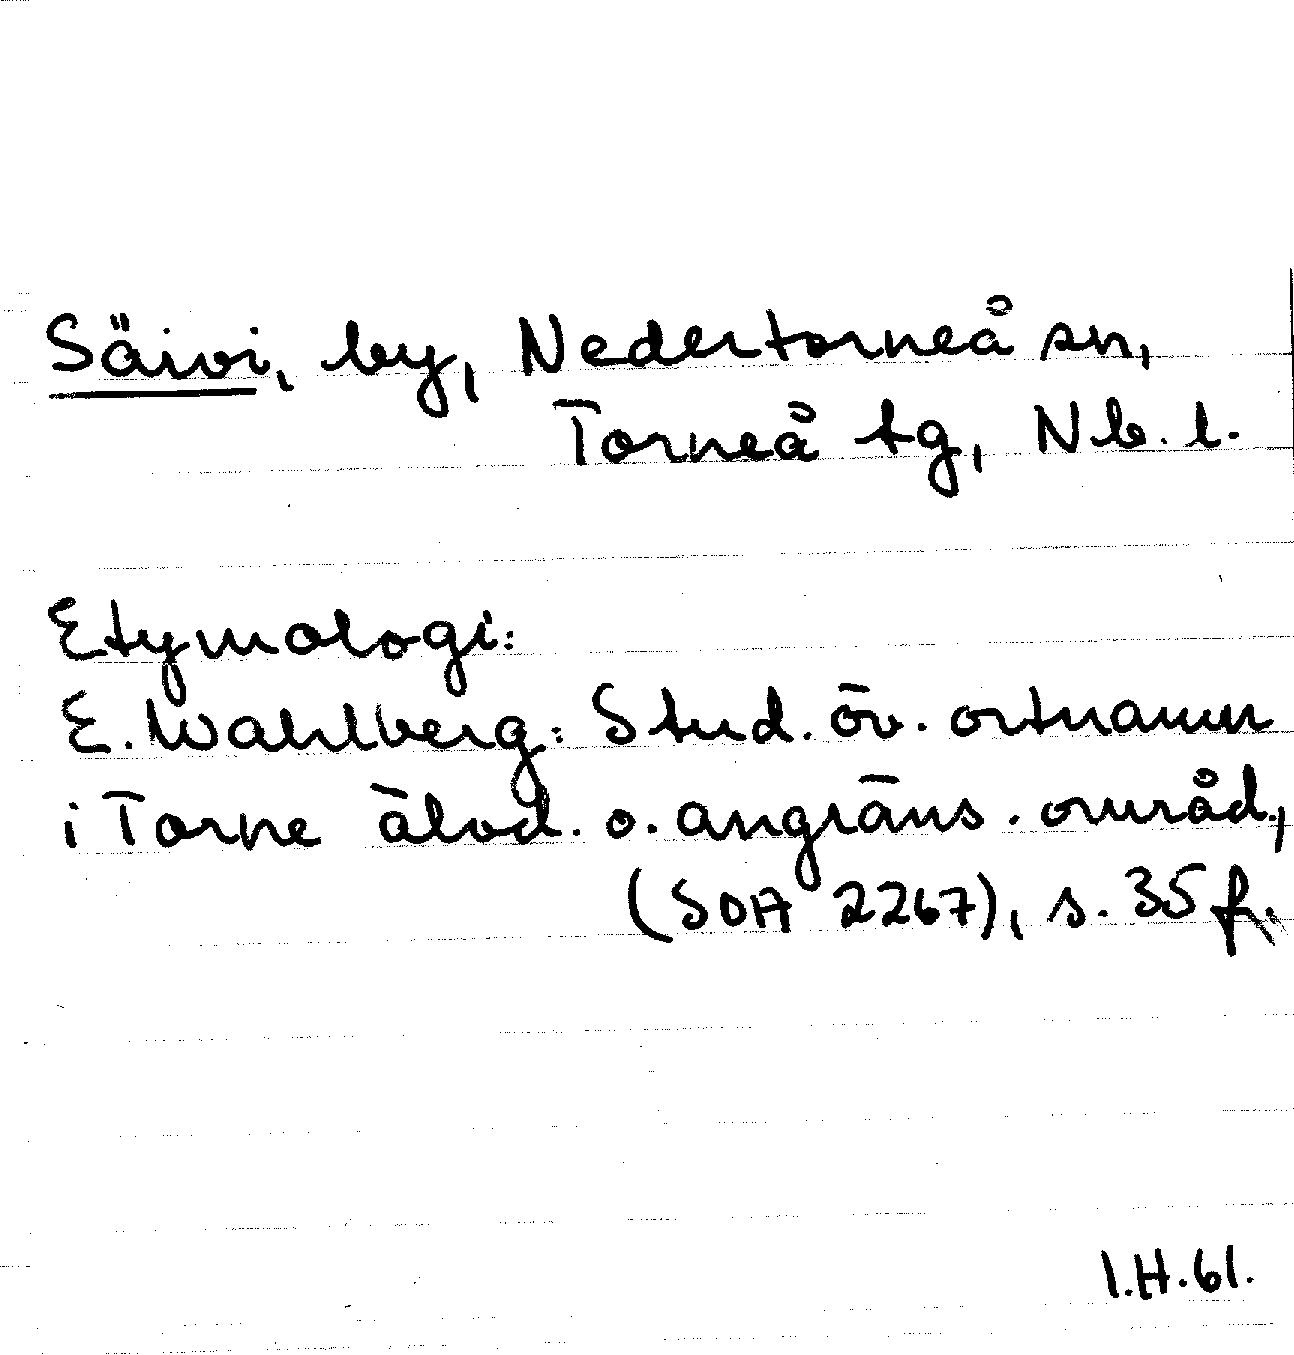 Säivi, by, Nedertorneå sn,
Torneå tg, Nb. l.
Etymologi:
E. Wahlberg: Stud. öv. ortnamn
i Torne älvd. o. angräns. områd.,
(SOA 2267), s. 35 f.
I.H.61.